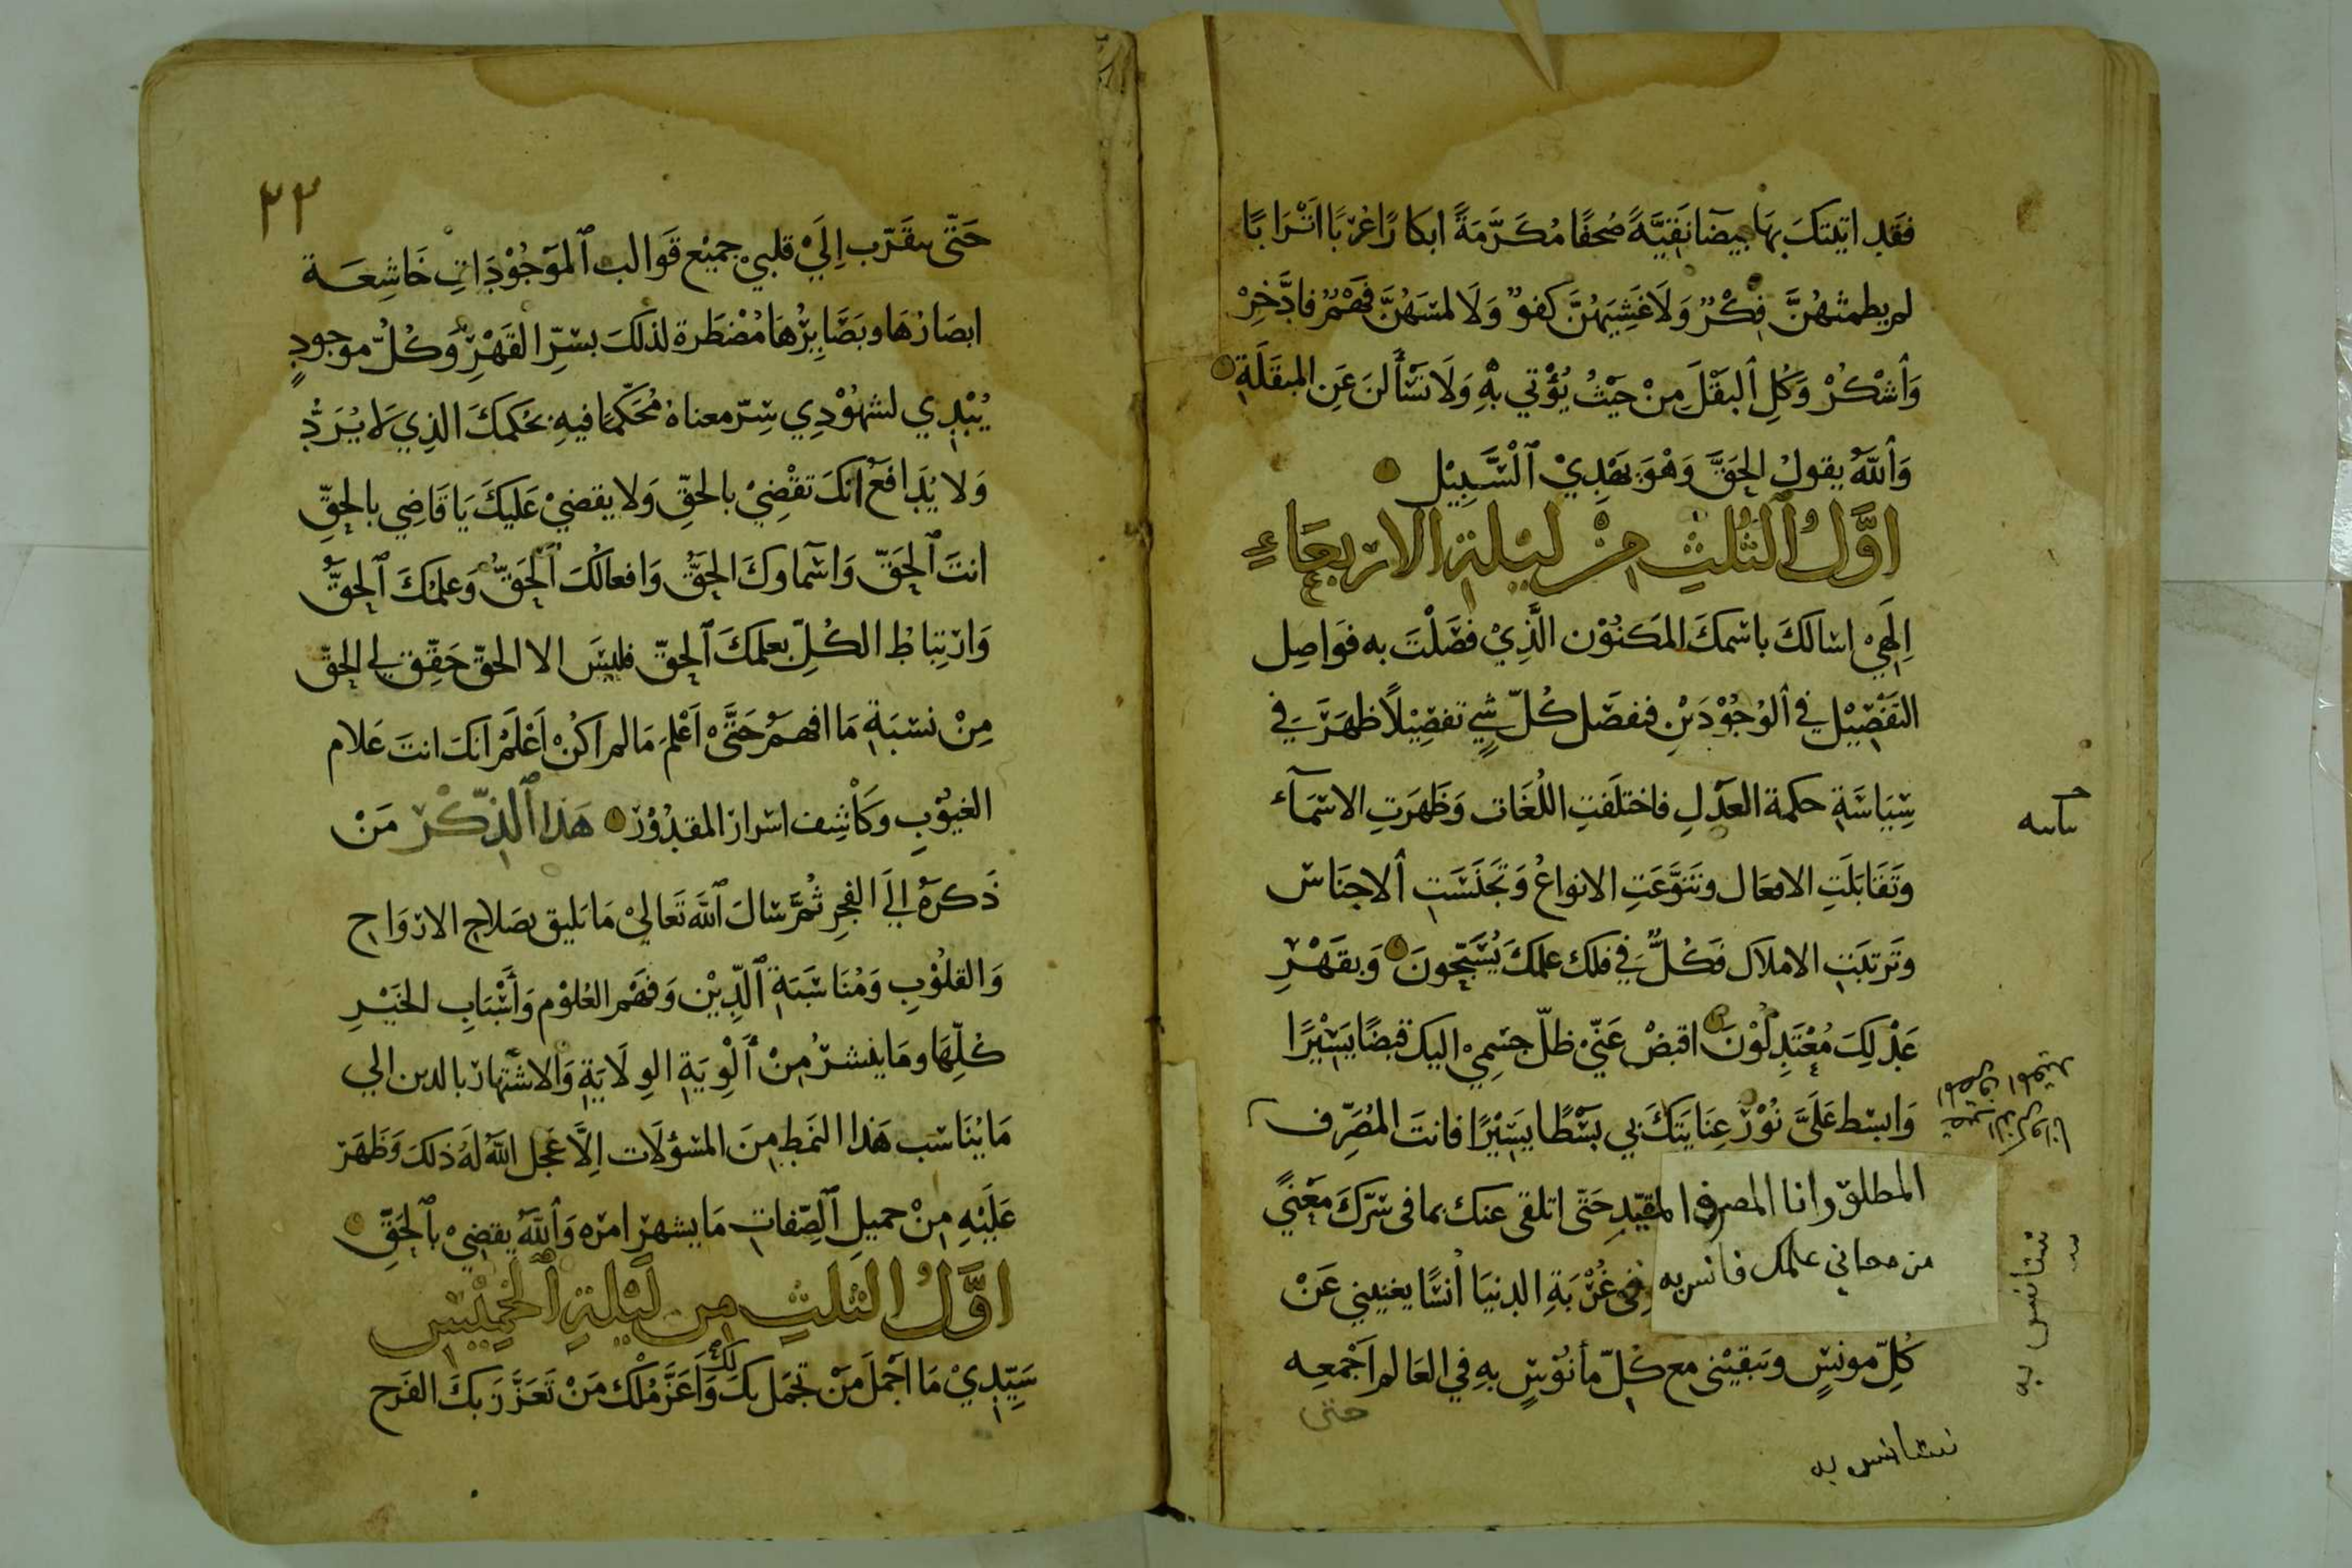 فقد اتيتك بها بيضا نقيَّةً صُحفًا مُكَرَّمَةً ابكارًا عُرْبًا اَتْرَابًا
لم يطمثهُنَّ فِكْرٌ وَلَا غَشِيَهُنَّ كفوٌ وَلَا لمسَهُنَّ فَهْمٌ فادَّخِرْ
وَاُشْكُرْ وَكُلِ اُلبَقْلَ مِنْ حَيْثُ يُؤْتي بهِ وَلَا تَسْأَلنَ عَنِ المبقَلَةِ
وَاُللّهُ يقولُ الحَقَّ وَهْوَ يَهْدِيْ اُلْسَّبِيْل
اوَّلُ الثُلثِ مِنْ ليْلةِ الاربعَاءِ
اِلهَيْ اسالكَ باسمكَ المَكنُوْن الَّذِيْ فصَّلْتَ به فوَاصِل
التَفْصِيْل في اُلوُجُوْدَيْنِ فنفصَّل كُلّ شيٍ تفصِيْلاً ظهَرَ في
سِيَاسَةِ حكمة العدْلِ فاختلَفتِ اللُغَات وَظَهَرَتِ الاسمَآء
وتَقَابَلَتِ الافعَال وتَنَوَّعَتِ الانواعُ وَتَجَنَسَتِ اُلاجنَاس
وتَرتَبَتِ الاملاك فَكُلٌّ في فلك علمكَ يُسَبِّحُونَ وَبقَهْرِ
عَدْلِكَ مُعْتَدِلُوْنَ اقبضْ عَنّيْ ظلّ جسمِيْ اليك قبضًا يَسِيْرًا
وَابسْط عَلَىَّ نُوْرَ عِنَايَتَكَ بي بَسْطًا يَسِيْرًا فانتَ المُصَرِّف
المطلق وانا المصرف المقيّدِ حَتّى اتلقى عنك بما في سرّكَ مَعْنيً
من معاني علمك فانس به في غُرْبَةِ الدنيَا اُنسًا يغنيني عَنْ
كُلِّ مونسٍ وتبقيْني مع كلّ مأنُوْسٍ بهِ في العَالم اَجْمعِه
حتى
نستانس به
نستانس به
٣٣
حَتّى يتقَرّب اِلَيْ قلبيْ جميْع قَوالب اُلموَجُوْدَاتِ خَاشِعَة
ابصَارُهَا وبَصَايِرُهَا مُضْطَرة لذلكَ بسّرِ القَهْرِ وَكُلُّ موجودٍ
يُبْدِي لشهُوْدِي سِرّ معناهُ مُحَكّمًا فيهِ بحُكمكَ الذِي لَا يُرَدُّ
وَلا يُدَافَعُ انكَ تقْضِيْ بالحَقِّ وَلا يقضيْ عَليكَ يَا قَاضِي بالحَقِّ
انتَ اُلحَقّ وَاسمآوكَ الحَقُّ وَافعالُكَ اُلحَقّ وَعلمُكَ اُلحَقُّ
وَارتِبَاطُ الكُلِّ بعلمكَ اُلحقّ فليسَ الا الحقّ حَقِّق لي الحَقّ
مِنْ نسْبَةِ مَا افهمُ حَتَّىْ اَعْلمَ مَالم اَكُنْ اَعْلَمُ انَكَ انتَ عَلام
الغيُوْبِ وكَاْشِف اسرار المقدُوْر هَذا اُلذِّكْر مَنْ
ذَكرَهُ اِلَي الفَجرِ ثُمَّ سَال اُللّهَ تَعاليْ مَا يَليق بصَلاحِ الارْوَاحِ
وَالقلُوْبِ وَمُنَاسَبَةِ اُلدِّيْن وَفهْم العُلوْم وَأَسْبَابِ الخَيْرِ
كُلِّهَا ومَا ينشرُ مِنْ اَلْوِيَةِ الوِلَايَةِ وَالاشتهار بالدين الي
مَا يُنَاسَب هَذا النمَطِ مِنَ المسؤلَات اِلَّا عَجل اللّهُ لَهُ ذلكَ وَظَهَرَ
عَلَيْهِ مِنْ جميلِ اُلصِّفاتِ مَا يشهرْ امرْه وَاُللّهُ يقضِيْ باُلحَقِّ
اوَّلُ الثلثِ مِن لَيْلَةِ اُلخَمِيْسِ
سَيِّدِيْ مَا اَجْملَ مَنْ تجمَل بكَ لك وَاَعَزَّ مُلْك مَنْ تَعَزَّزَ بكَ الفَرح